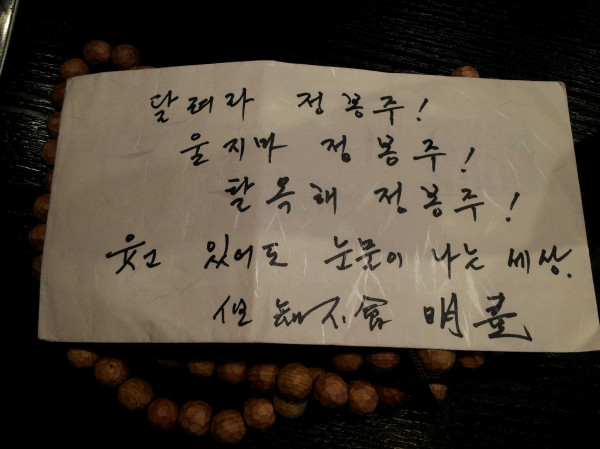 달려라 정봉주!
울지마 정봉주!
탈옥해 정봉주!
웃고 있어도 눈물이 나는 세상.
但知不會 明